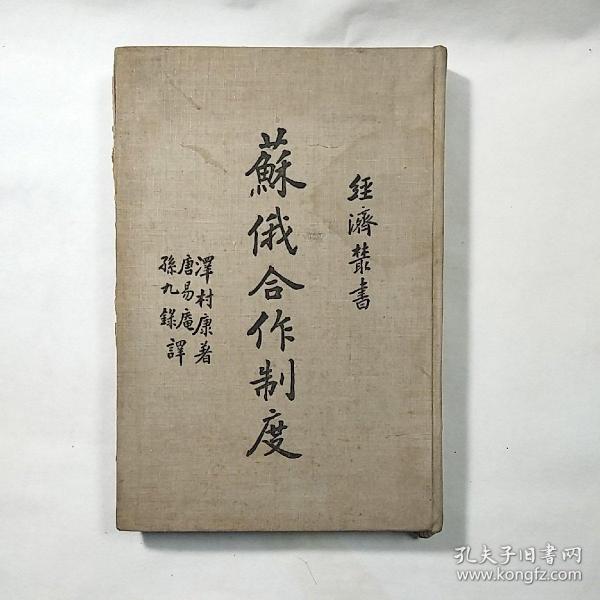 經濟叢書
蘇俄合作制度
澤村康著
唐易庵
孫九錄譯
孔夫子旧書网
www.kongfz.com